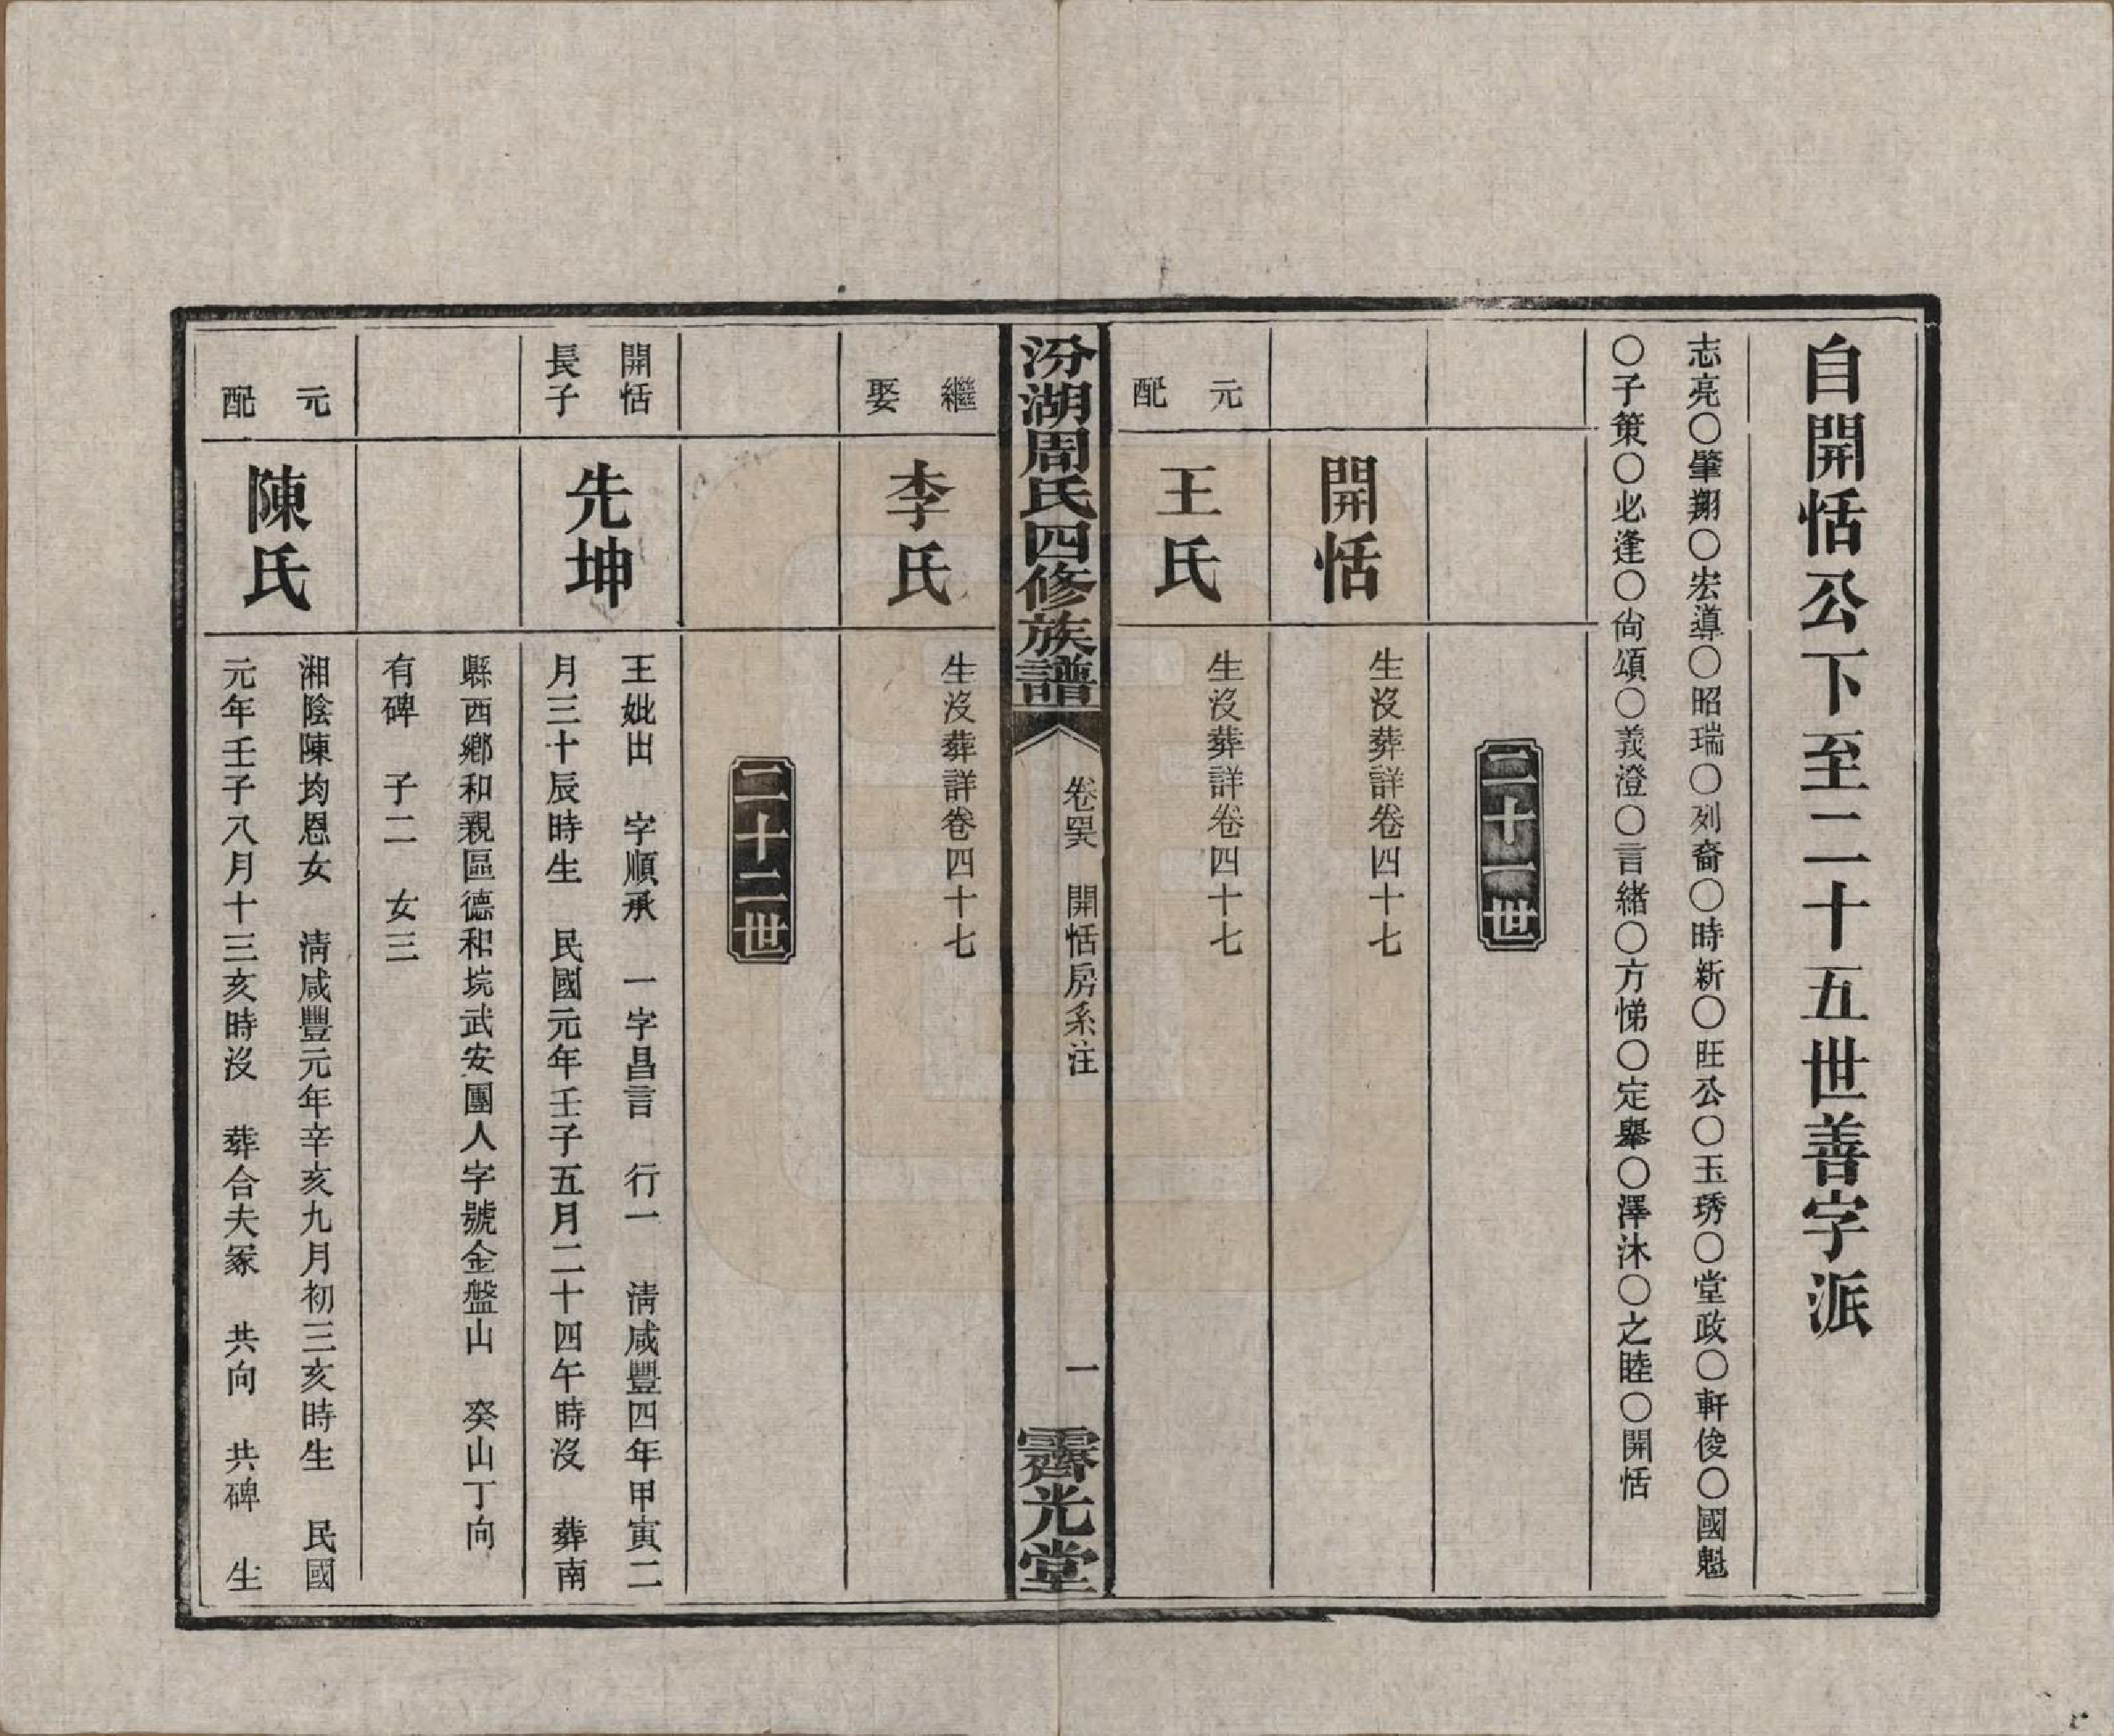 自開恬公下至二十五世善字派
志亮〇肇翔〇宏導〇昭瑞〇列裔〇時新〇旺公〇玉琇〇堂政〇軒俊〇國魁
〇子策〇必逢〇尙頌〇義澄〇言緒〇方悌〇定舉〇澤沐〇之睦〇開恬
二十一世
開恬
生沒葬詳卷四十七
元配
王氏
生沒葬詳卷四十七
汾湖周氏四修族譜
卷罢 開恬房系注
一
霽光堂
繼娶
李氏
生沒葬詳卷四十七
二十二世
開恬
長子
先坤
王妣出 字順承 一字昌言 行一 淸咸豐四年甲寅二
月三十辰時生 民國元年壬子五月二十四午時沒 葬南
縣西鄕和親區德和垸武安團人字號金盤山 癸山丁向
有碑 子二 女三
元配
陳氏
湘陰陳均恩女 淸咸豐元年辛亥九月初三亥時生 民國
元年壬子八月十三亥時沒 葬合夫冢 共向 共碑 生